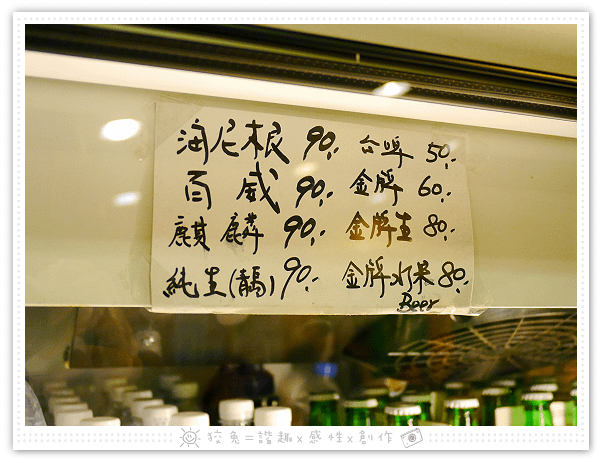 海尼根 90.- 台啤 50.-
百威 90.- 金牌 60.-
麒麟 90.- 金牌生 80.-
純生(鶴) 90.- 金牌水果 80.-
Beer
狡兔=諧趣x感性x創作